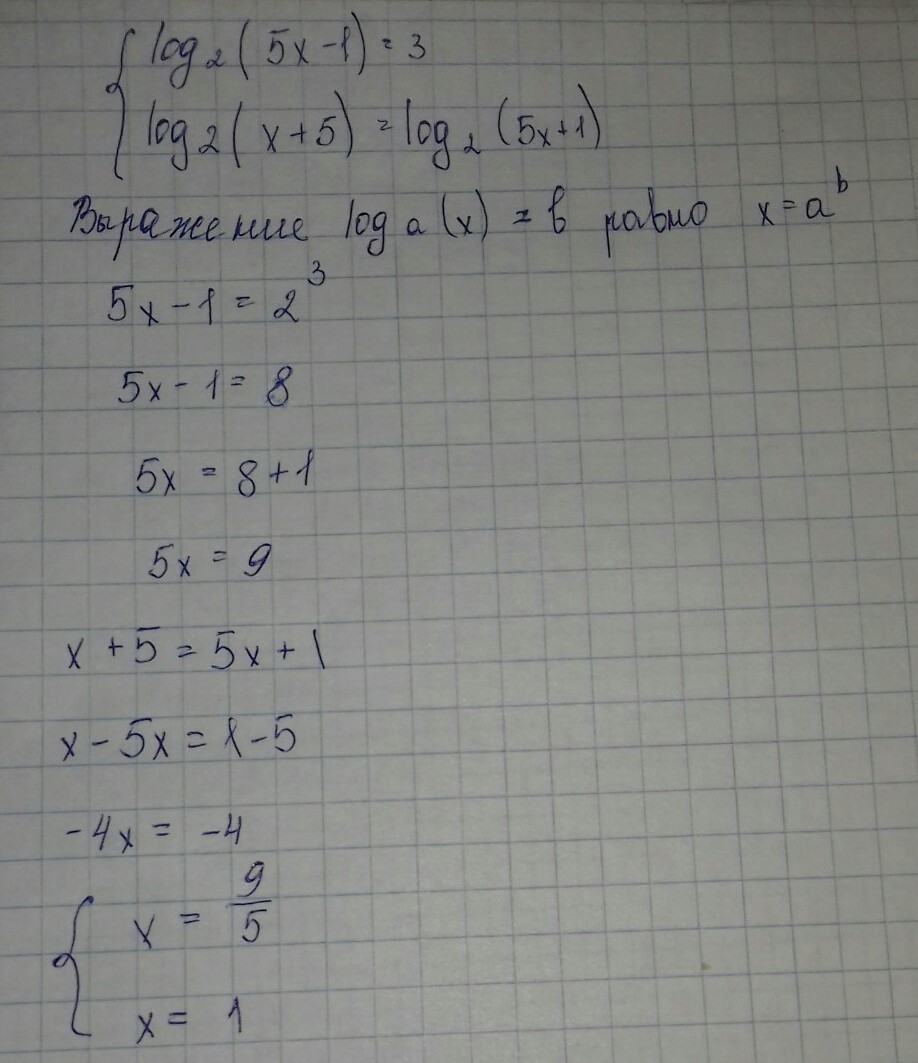 { log₂(5x-1) = 3
log₂(x+5) = log₂(5x+1)
Выражение log a(x) = b равно x = a^b
5x - 1 = 2³
5x - 1 = 8
5x = 8 + 1
5x = 9
x + 5 = 5x + 1
x - 5x = 1 - 5
-4x = -4
{ x = 9/5
x = 1